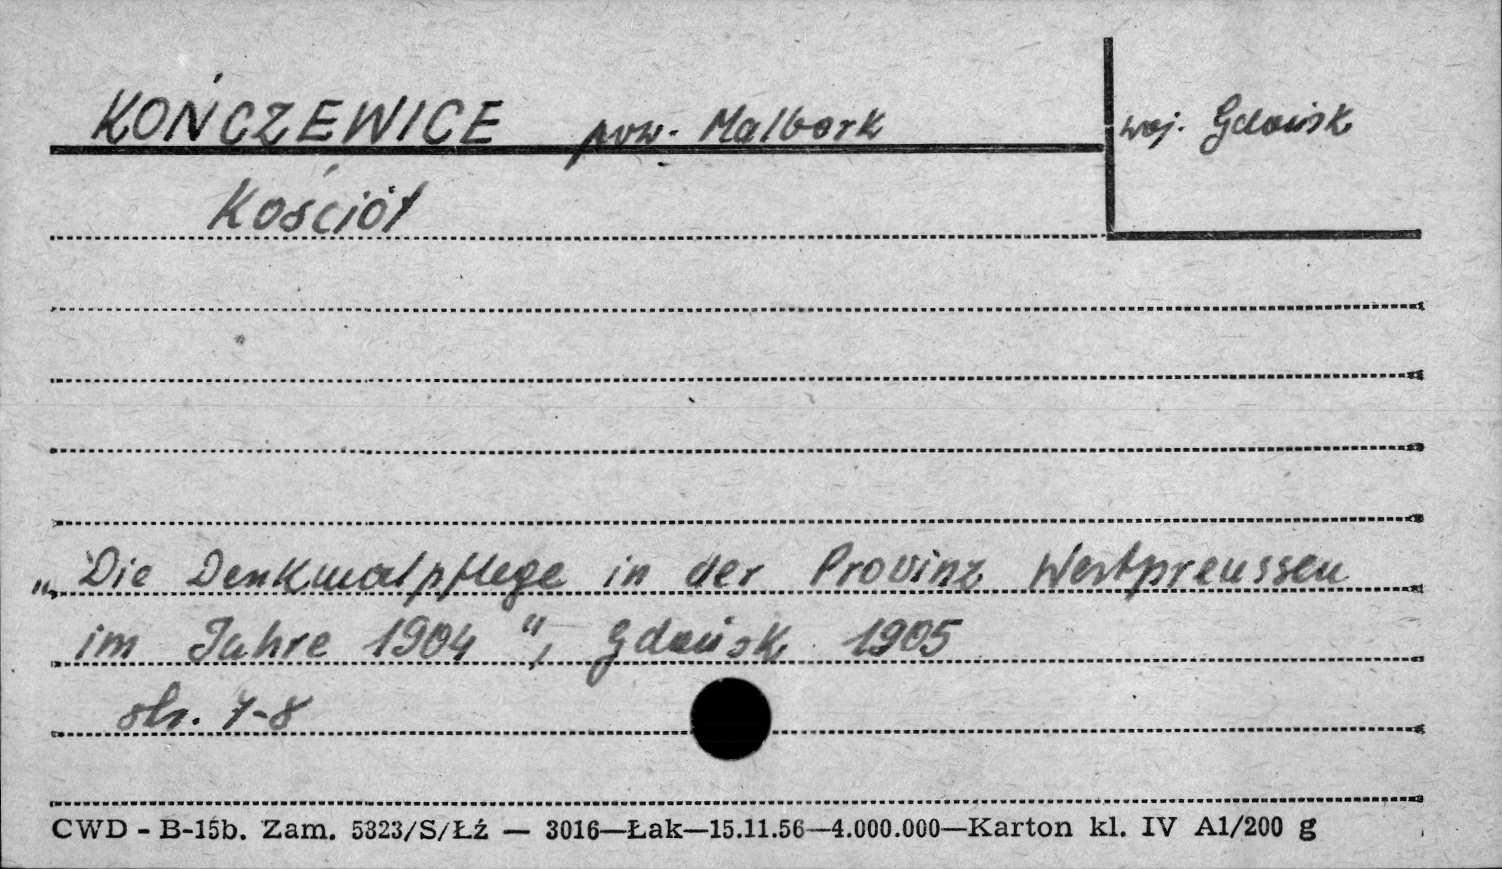 KOŃCZEWICE pow. Malbork woj. Gdańsk
Kościół
„Die Denkmalpflege in der Provinz Westpreussen
im Jahre 1904", Gdańsk 1905
str. 7-8
CWD - B-15b. Zam. 5323/S/Łź — 3016—Łak—15.11.56—4.000.000—Karton kl. IV A1/200 g